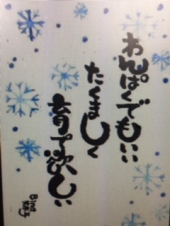 わんぱくでもいい
たくましく
育って欲しい